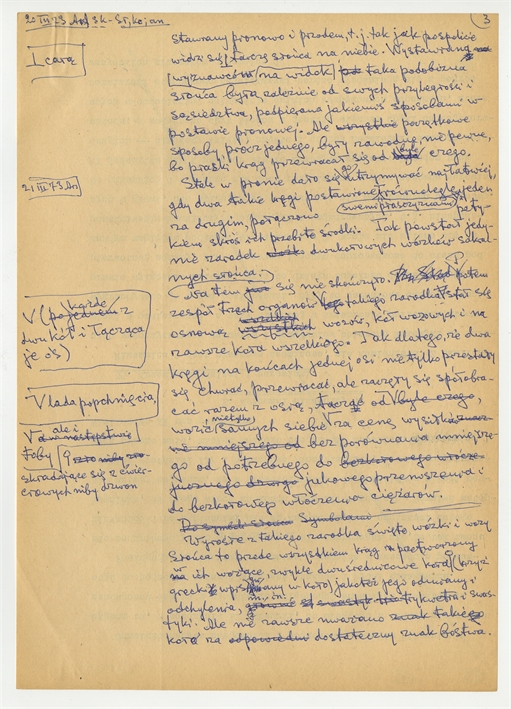 20 III 73
3
Icarą
stawrany pronowo i przodem, t.j. tak jak pospolicie
widzi się tarczę słońca na niebie. Wystawiana
(wyznawców na widok) taka podobizna
słońca była, zależnie od swych przyległości i
sąsiedztwa, podpierana jakiemiś sposobami w
postawie pronowej. Ale wszystkie początkowe
sposoby, prócz jednego, były zawodne, niepewne,
bo płaski krąg przewracał się od byle czego.
21 III 73
Stale w pronie dało się utrzymywać najłatwiej,
gdy dwa takie kręgi postawiono równolegle, jeden
za drugim, połączono
swemi płaszczyznami
paty-
kiem skroś ich przebite środki. Tak powstał jedy-
nie zarodek dwukołowych wózków sakral-
nych słońca.
Na tem się nie skończyło. Potem
zespół trzech organów takiego zarodka stał się
osnową wszystkich wozów, kół wozowych i na
zawsze koła wszelkiego. Tak dlatego, że dwa
kręgi na końcach jednej osi nie tylko przestały
się chwiać, przewracać, ale zaczęły się społobra-
cać razem z osią, od byle czego,
wozić nietylko samych siebie za cenę wysiłku
bez porównania mniejsze-
go od potrzebnego do
jukowego przenoszenia i
do bezkołowego włóczenia ciężarów.
V (po jednem z każde
dwu kół i łącząca
je oś)
Vlada popchnięcia.
V ale i
żeby
składające się z ćwier-
ciowych niby dzwon
Symbolami
Wyrosłe z takiego zarodka święte wózki i wozy
słońca to przede wszystkiem krąg przetworzony
w ich wożące, zwykłe dwuśrednicowe koła (krzyż
grecki wpisany w koło) jakoteż jego odmiany i
odchylenia, trykwetra i swas-
tyki. Ale nie zawsze uważano takie
koła za dostateczny znak bóstwa.